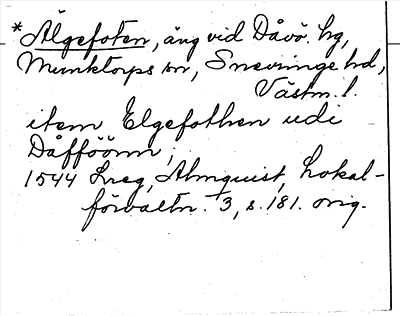 *Älgefoten, äng vid Dåvö hg,
Munktorps sn, Snevringe hd,
Västm. l.
item Elgefothen udi
Dåfföönn;
1544 Lreg, Almquist, Lokal-
förvaltn. 3, s. 181. orig.